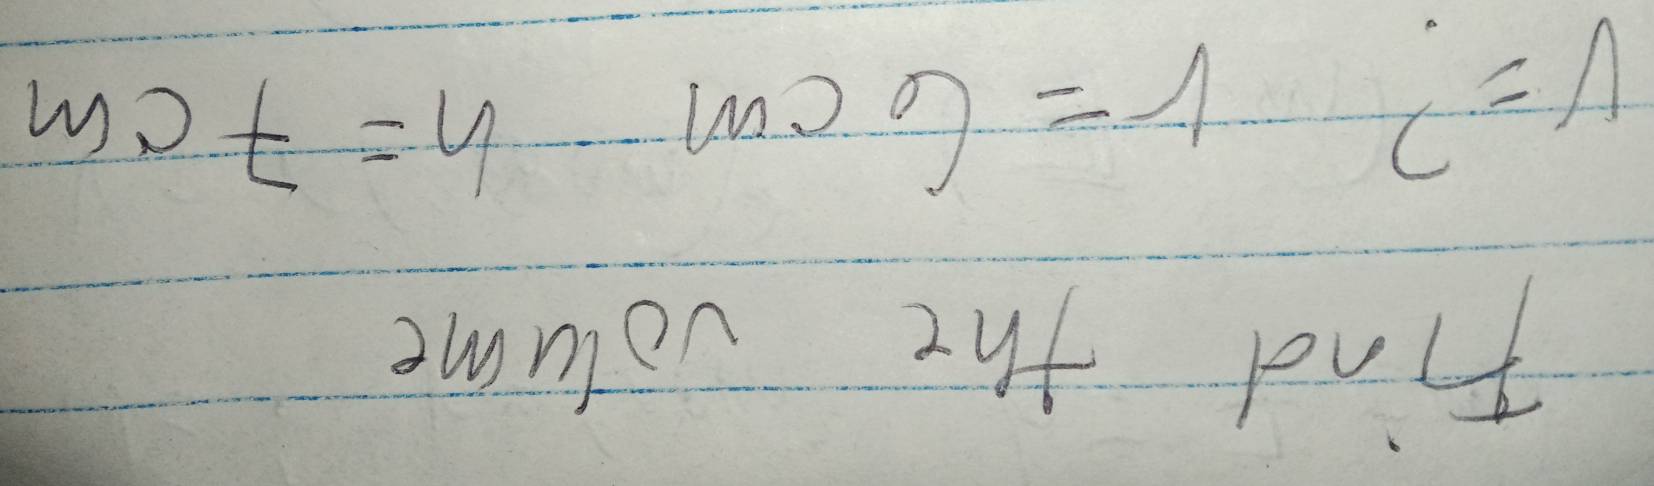 Find the volume
V = ? r = 6 cm h = 7 cm